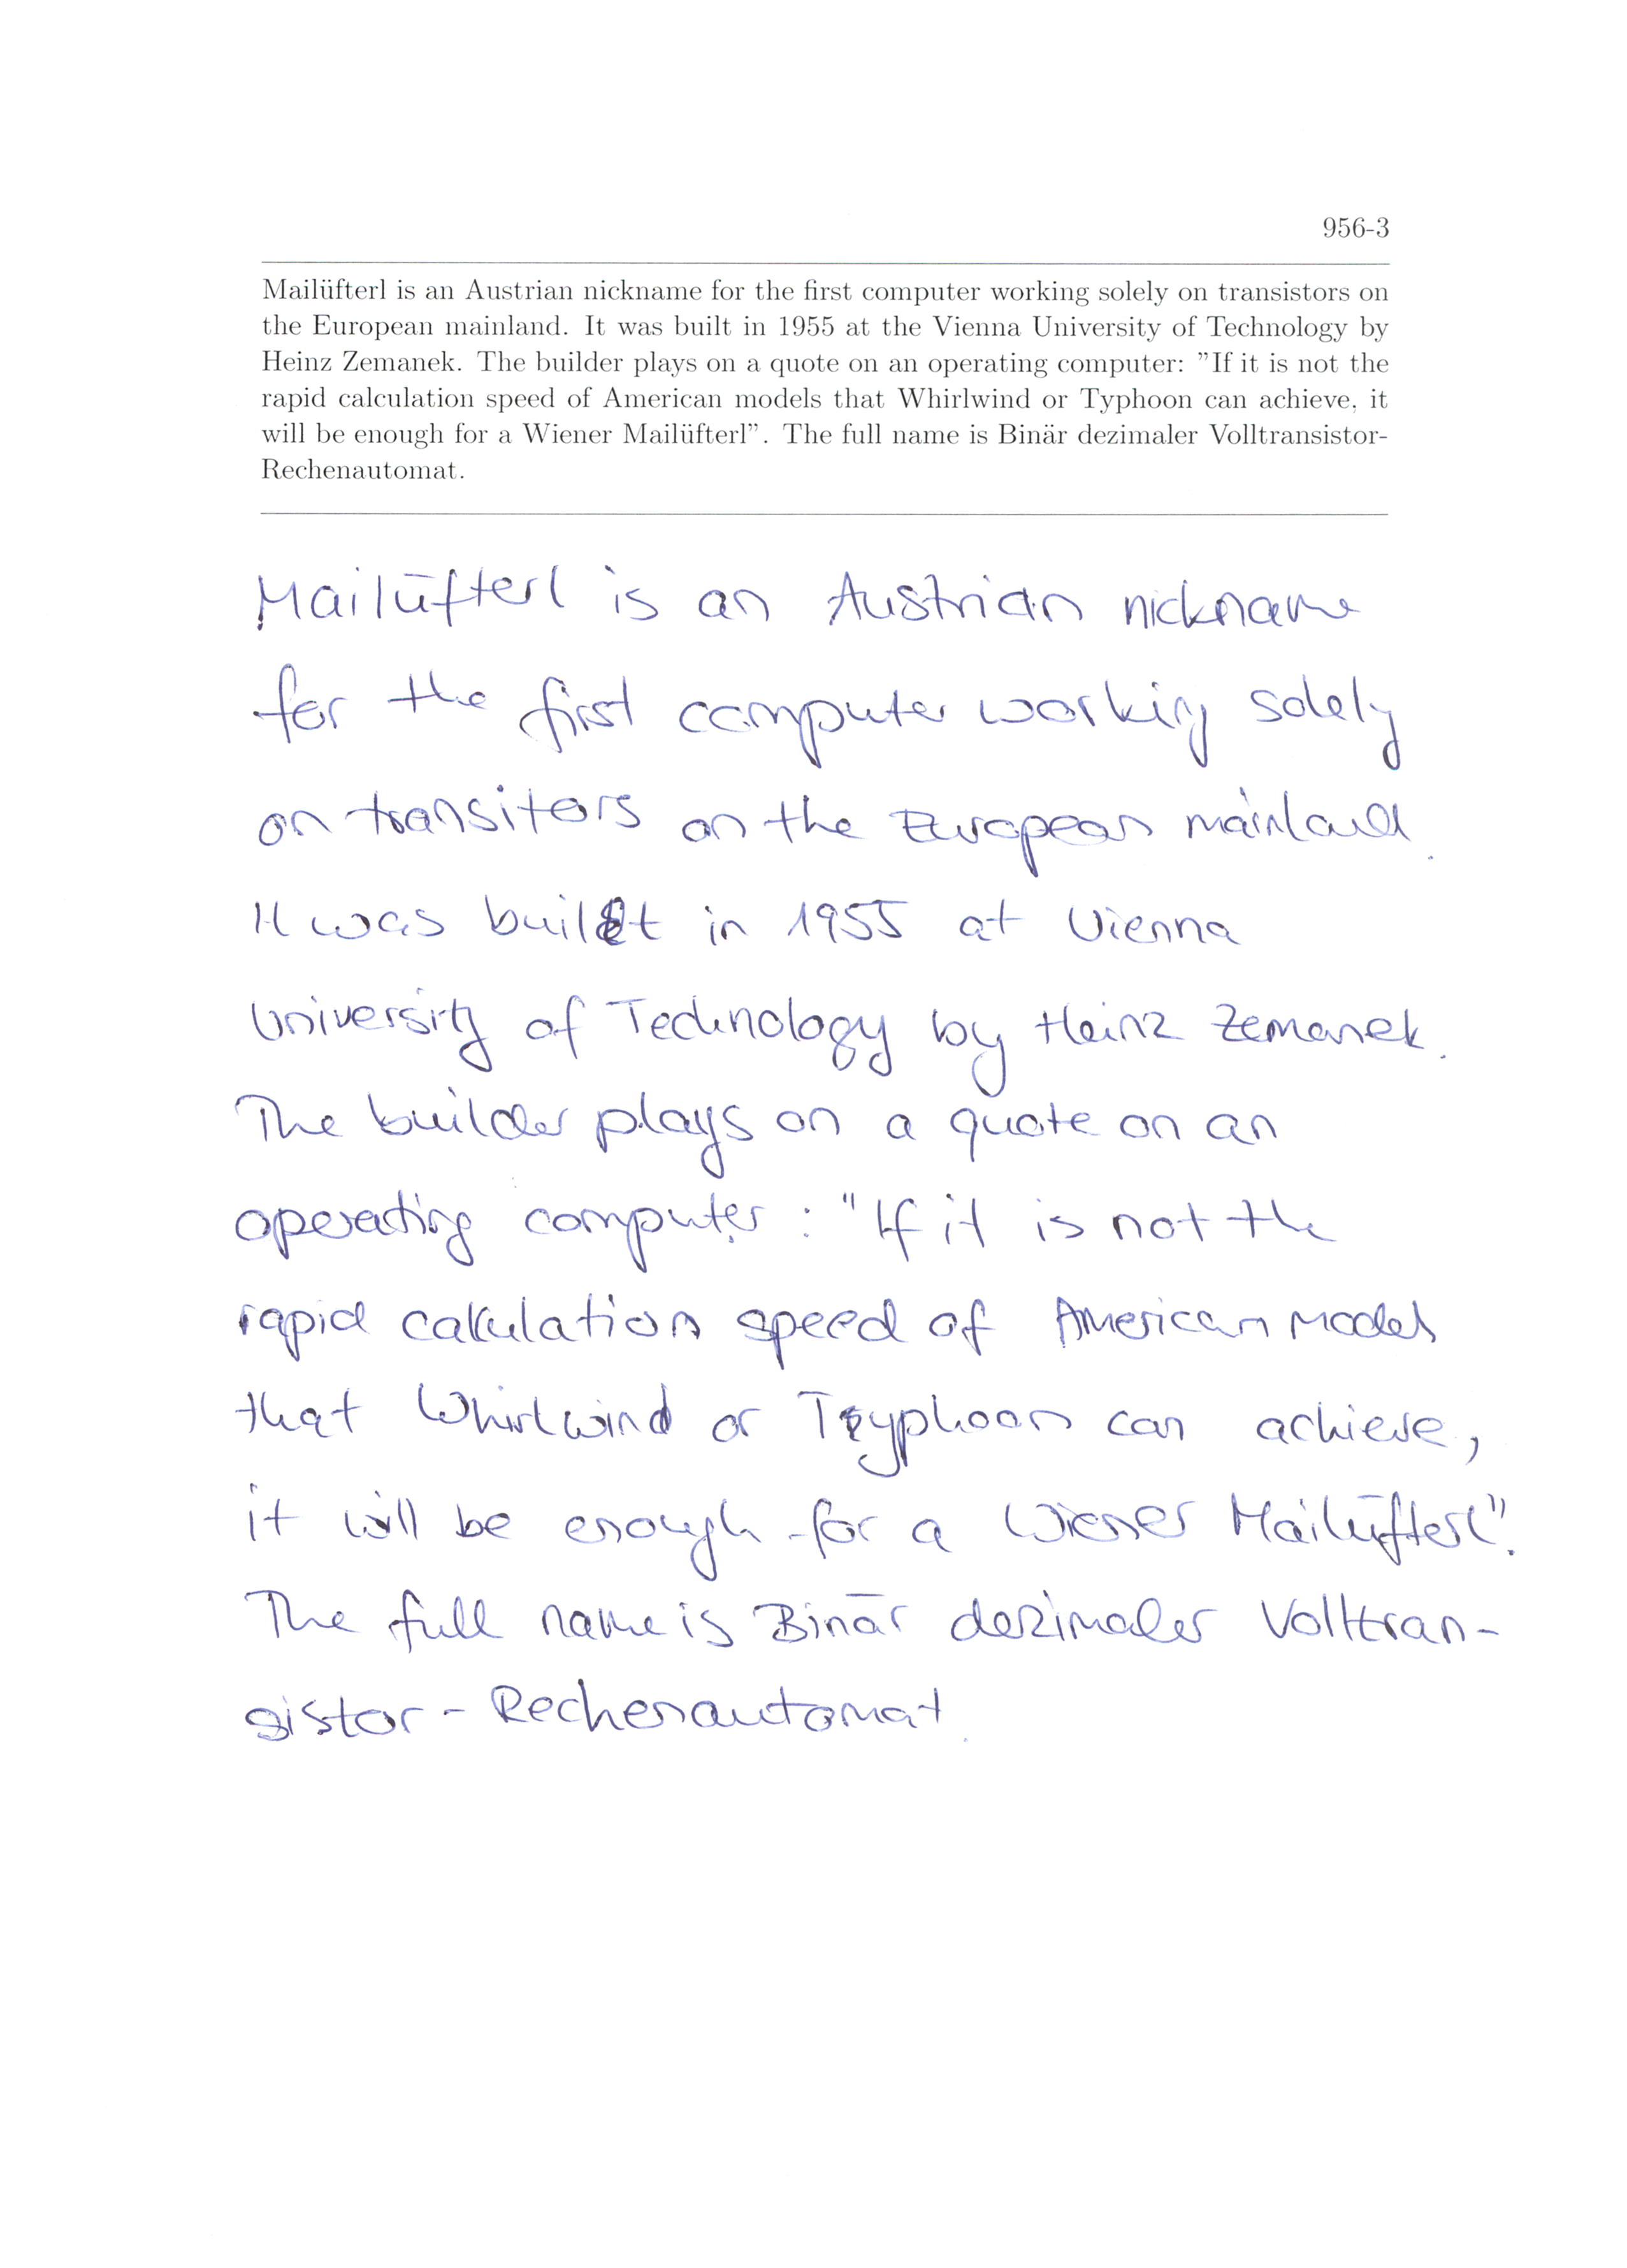 956-3
Mailüfterl is an Austrian nickname for the first computer working solely on transistors on
the European mainland. It was built in 1955 at the Vienna University of Technology by
Heinz Zemanek. The builder plays on a quote on an operating computer: "If it is not the
rapid calculation speed of American models that Whirlwind or Typhoon can achieve, it
will be enough for a Wiener Mailüfterl". The full name is Binär dezimaler Volltransistor-
Rechenautomat.
Mailüfterl is an Austrian nickname
for the first computer working solely
on transitors on the European mainland.
It was built in 1955 at Vienna
University of Technology by Heinz Zemanek.
The builder plays on a quote on an
operating computer : "If it is not the
rapid calculation speed of American models
that Whirlwind or Typhoon can achieve,
it will be enough for a Wiener Mailüfterl".
The full name is Binär dezimaler Volltran-
sistor - Rechenautomat.